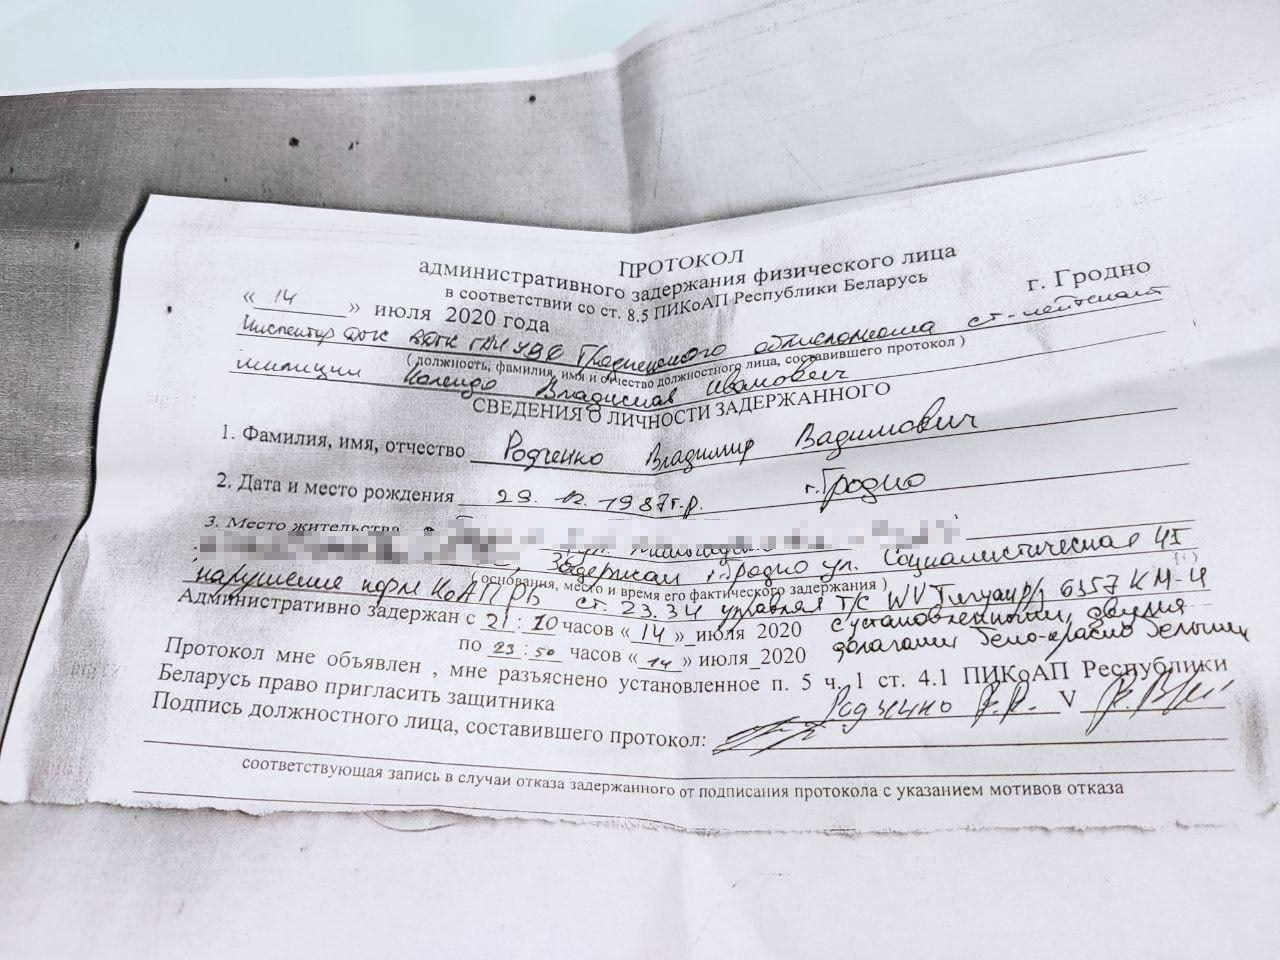 ПРОТОКОЛ
административного задержания физического лица
в соответствии со ст. 8.5 ПИКоАП Республики Беларусь
« 14 » июля 2020 года г. Гродно
Инспектор УДФ Гродненского облисполкома ст-лейтенант
( должность, фамилия, имя и отчество должностного лица, составившего протокол )
милиции Владислав Иванович
СВЕДЕНИЯ О ЛИЧНОСТИ ЗАДЕРЖАННОГО
1. Фамилия, имя, отчество Родченко Владимир Вадимович
2. Дата и место рождения 29. 12. 1987г.р. г. Гродно
3. Место жительства
Задержан г. Гродно ул. Социалистическая 41
( основания, место и время его фактического задержания )
нарушение норм КоАП РБ ст. 23.34 управлял Т/С WV Тигуан р/з 6357 КМ-4
Административно задержан с 21:10 часов « 14 » июля 2020 с установленными двумя
по 23:50 часов « 14 » июля 2020 флагами бело-красно белыми
Протокол мне объявлен , мне разъяснено установленное п. 5 ч. 1 ст. 4.1 ПИКоАП Республики
Беларусь право пригласить защитника Родченко V
Подпись должностного лица, составившего протокол:
соответствующая запись в случаи отказа задержанного от подписания протокола с указанием мотивов отказа